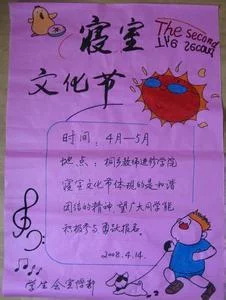 寝室
The second
文化节
时间：4月—5月
地点：桐乡教师进修学院
寝室文化节体现的是和谐
团结的精神，望广大同学能
积极参与，勇跃报名。
2008.4.14.
学生会宣传部